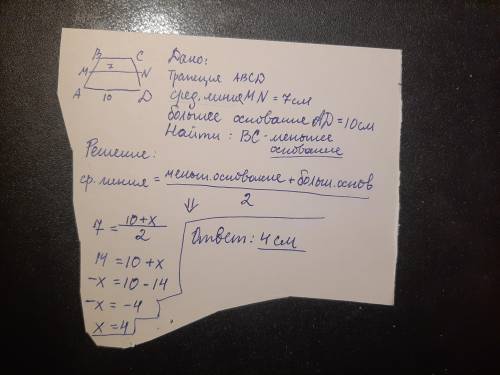 B C
7
M N
A D
10
Дано:
Трапеция ABCD
сред. линия MN = 7 см
большее основание AD = 10 см
Найти: BC - меньшее
основание
Решение:
ср. линия = меньш. основание + больш. основ
2
⇓
7 = 10+x
2
14 = 10 + x
-x = 10 - 14
-x = -4
x = 4
Ответ: 4 см